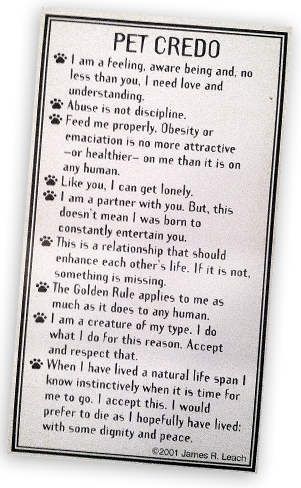 PET CREDO
I am a feeling, aware being and, no
less than you, I need love and
understanding.
Abuse is not discipline.
Feed me properly. Obesity or
emaciation is no more attractive
–or healthier– on me than it is on
any human.
Like you, I can get lonely.
I am a partner with you. But, this
doesn't mean I was born to
constantly entertain you.
This is a relationship that should
enhance each other's life. If it is not,
something is missing.
The Golden Rule applies to me as
much as it does to any human.
I am a creature of my type. I do
what I do for this reason. Accept
and respect that.
When I have lived a natural life span I
know instinctively when it is time for
me to go. I accept this. I would
prefer to die as I hopefully have lived:
with some dignity and peace.
©2001 James R. Leach